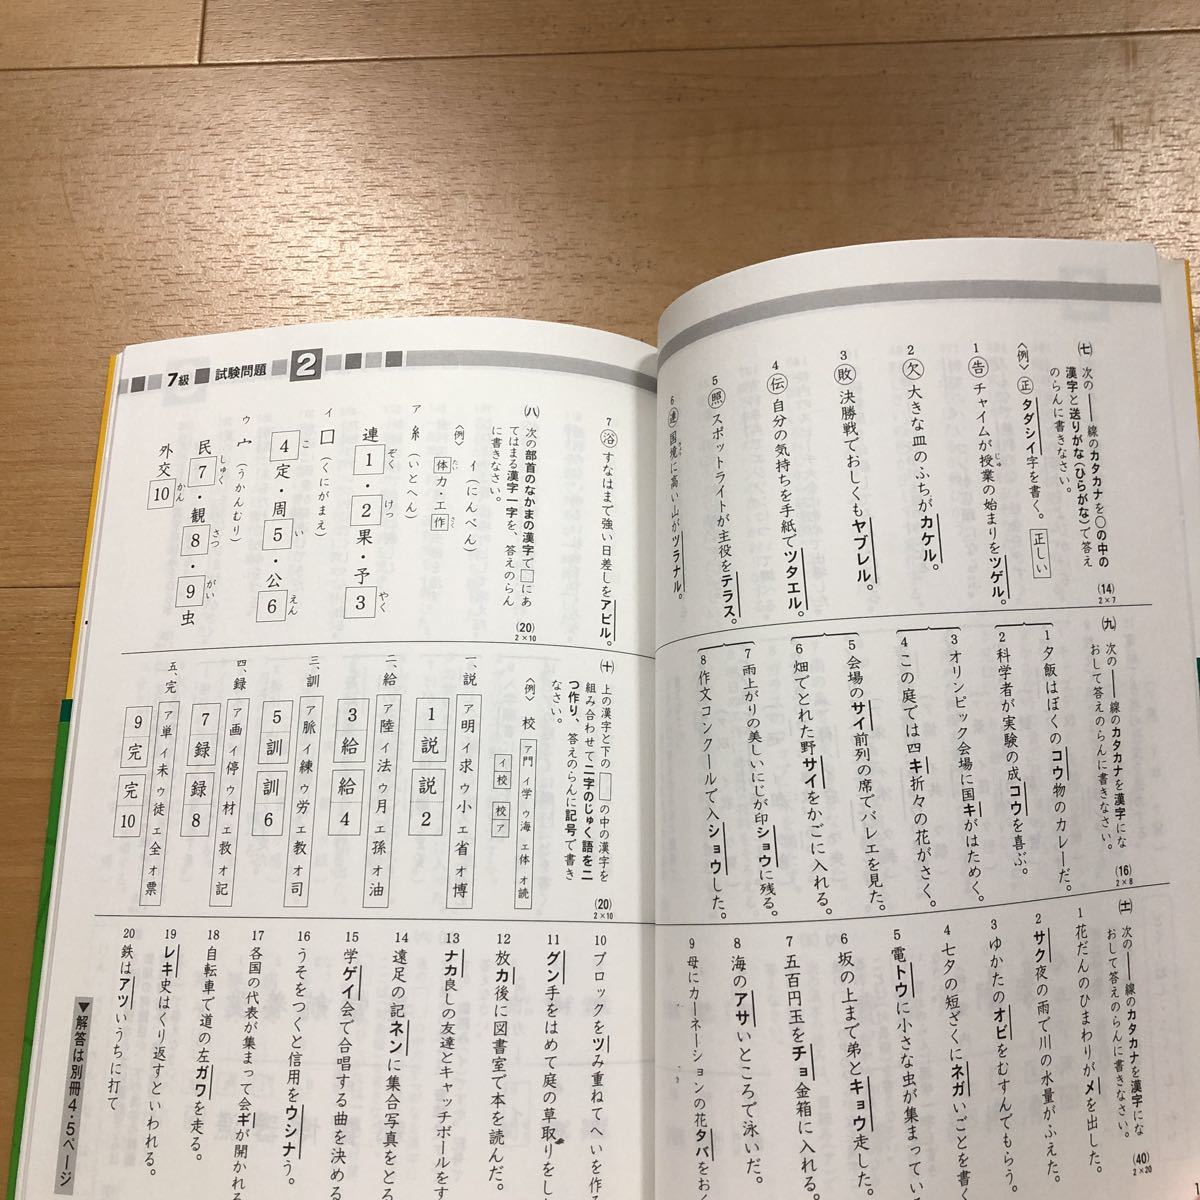 ㈦ 次の――線のカタカナを○の中の
漢字と送りがな(ひらがな)で答え
のらんに書きなさい。
(14)
2×7
〈例〉 正 タダシイ字を書く。 正しい
1 告 チャイムが授業の始まりをツゲル。
じゅ
2 欠 大きな皿のふちがカケル。
3 敗 決勝戦でおしくもヤブレル。
4 伝 自分の気持ちを手紙でツタエル。
5 照 スポットライトが主役をテラス。
6 連 国境に高い山がツラナル。
㈨ 次の――線のカタカナを漢字にな
おして答えのらんに書きなさい。
(16)
2×8
1 夕飯はぼくのコウ物のカレーだ。
2 科学者が実験の成コウを喜ぶ。
3 オリンピック会場に国キがはためく。
4 この庭では四キ折々の花がさく。
5 会場のサイ前列の席でバレエを見た。
6 畑でとれた野サイをかごに入れる。
7 雨上がりの美しいにじが印ショウに残る。
8 作文コンクールで入ショウした。
㈩㈠ 次の――線のカタカナを漢字にな
おして答えのらんに書きなさい。
(40)
2×20
1 花だんのひまわりがメを出した。
2 サク夜の雨で川の水量がふえた。
3 ゆかたのオビをむすんでもらう。
4 七夕の短ざくにネガいごとを書く
5 電トウに小さな虫が集まっている
6 坂の上まで弟とキョウ走した。
7 五百円玉をチョ金箱に入れる。
8 海のアサいところで泳いだ。
9 母にカーネーションの花タバをおく
7級 試験問題 2
7 浴 すなはまで強い日差しをアビル。
㈧ 次の部首のなかまの漢字で□にあ
てはまる漢字一字を、答えのらん
に書きなさい。
(20)
2×10
〈例〉 イ(にんべん)
体力・工作
たい さく
ア 糸(いとへん)
連1・2果・予3
ぞく けっ やく
イ 囗(くにがまえ)
4定・周5・公6
こ い えん
ウ 宀(うかんむり)
民7・観8・9虫
しゅく さつ がい
外交10
かん
㈩ 上の漢字と下の□の中の漢字を
組み合わせて二字のじゅく語を二
つ作り、答えのらんに記号で書き
なさい。
(20)
2×10
〈例〉 校 ア門 イ学 ウ海 エ体 オ読
イ校 校ア
一、説 ア明 イ求 ウ小 エ省 オ博
1説 説2
二、給 ア陸 イ法 ウ月 エ孫 オ油
3給 給4
三、訓 ア脈 イ練 ウ労 エ教 オ司
5訓 訓6
四、録 ア画 イ停 ウ材 エ救 オ記
7録 録8
五、完 ア単 イ未 ウ徒 エ全 オ票
9完 完10
10 ブロックをツみ重ねてへいを作る
11 グン手をはめて庭の草取りをし
12 放カ後に図書室で本を読んだ。
13 ナカ良しの友達とキャッチボールをす
14 遠足の記ネンに集合写真をとる
15 学ゲイ会で合唱する曲を決める
16 うそをつくと信用をウシナう。
17 各国の代表が集まって会ギが開かれる
18 自転車で道の左ガワを走る。
19 レキ史はくり返すといわれる。
20 鉄はアツいうちに打て
▼解答は別冊4・5ページ